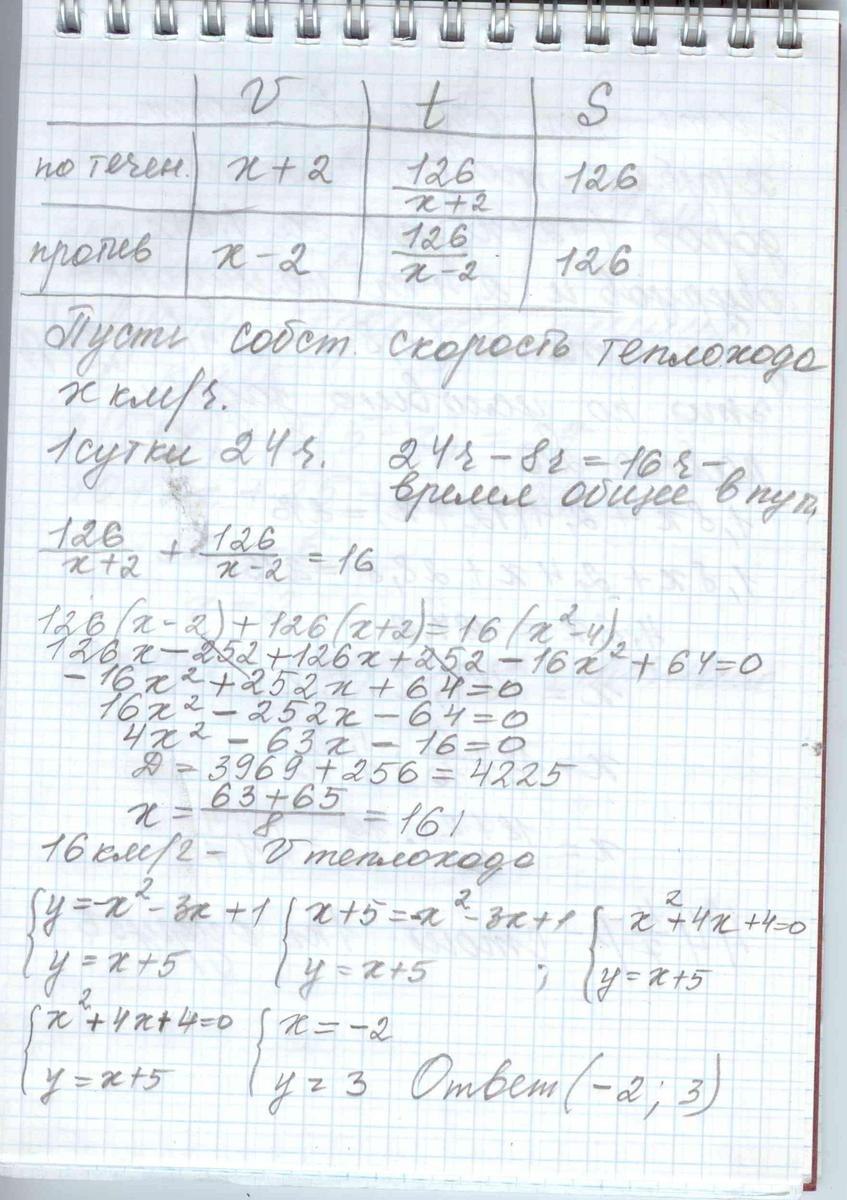 V t S
по течен. x+2 126/(x+2) 126
против x-2 126/(x-2) 126
Пусть собст. скорость теплохода
x км/ч.
1 сутки 24ч. 24ч - 8ч = 16ч -
время общее в пути
126/(x+2) + 126/(x-2) = 16
126(x-2)+126(x+2)=16(x²-4)
126x-252+126x+252-16x²+64=0
-16x²+252x+64=0
16x²-252x-64=0
4x²-63x-16=0
D=3969+256=4225
x=(63+65)/8=16
16км/ч - V теплохода
{y=-x²-3x+1 {x+5=-x²-3x+1 {x²+4x+4=0
y=x+5 y=x+5 ; y=x+5
{x²+4x+4=0 {x=-2
y=x+5 y=3 Ответ (-2; 3)